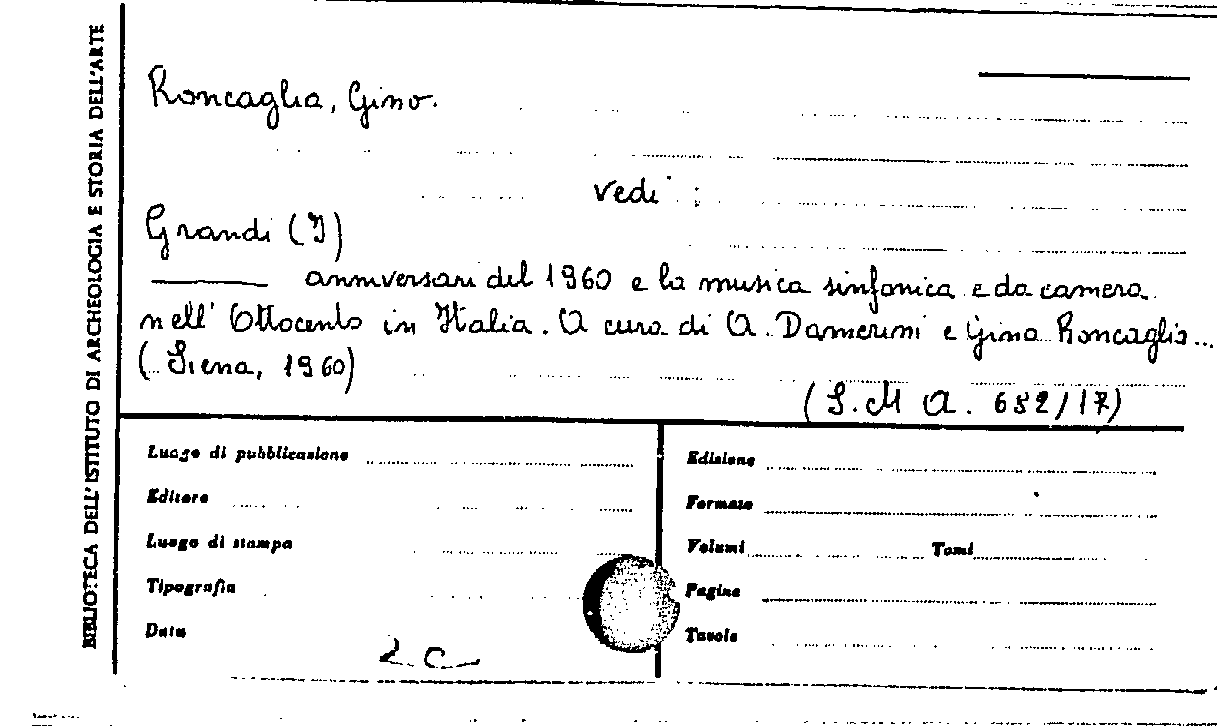 BIBLIOTECA DELL'ISTITUTO DI ARCHEOLOGIA E STORIA DELL'ARTE
Roncaglia, Gino.
vedi :
Grandi (I)
anniversari del 1960 e la musica sinfonica e da camera
nell'Ottocento in Italia. A cura di A. Damerini e Gino Roncaglia...
(Siena, 1960)
(S. M A. 652/17)
Luogo di pubblicazione
Edizione
Editore
Formato
Luogo di stampa
Volumi Tomi
Tipografia
Pagine
Data
Tavole